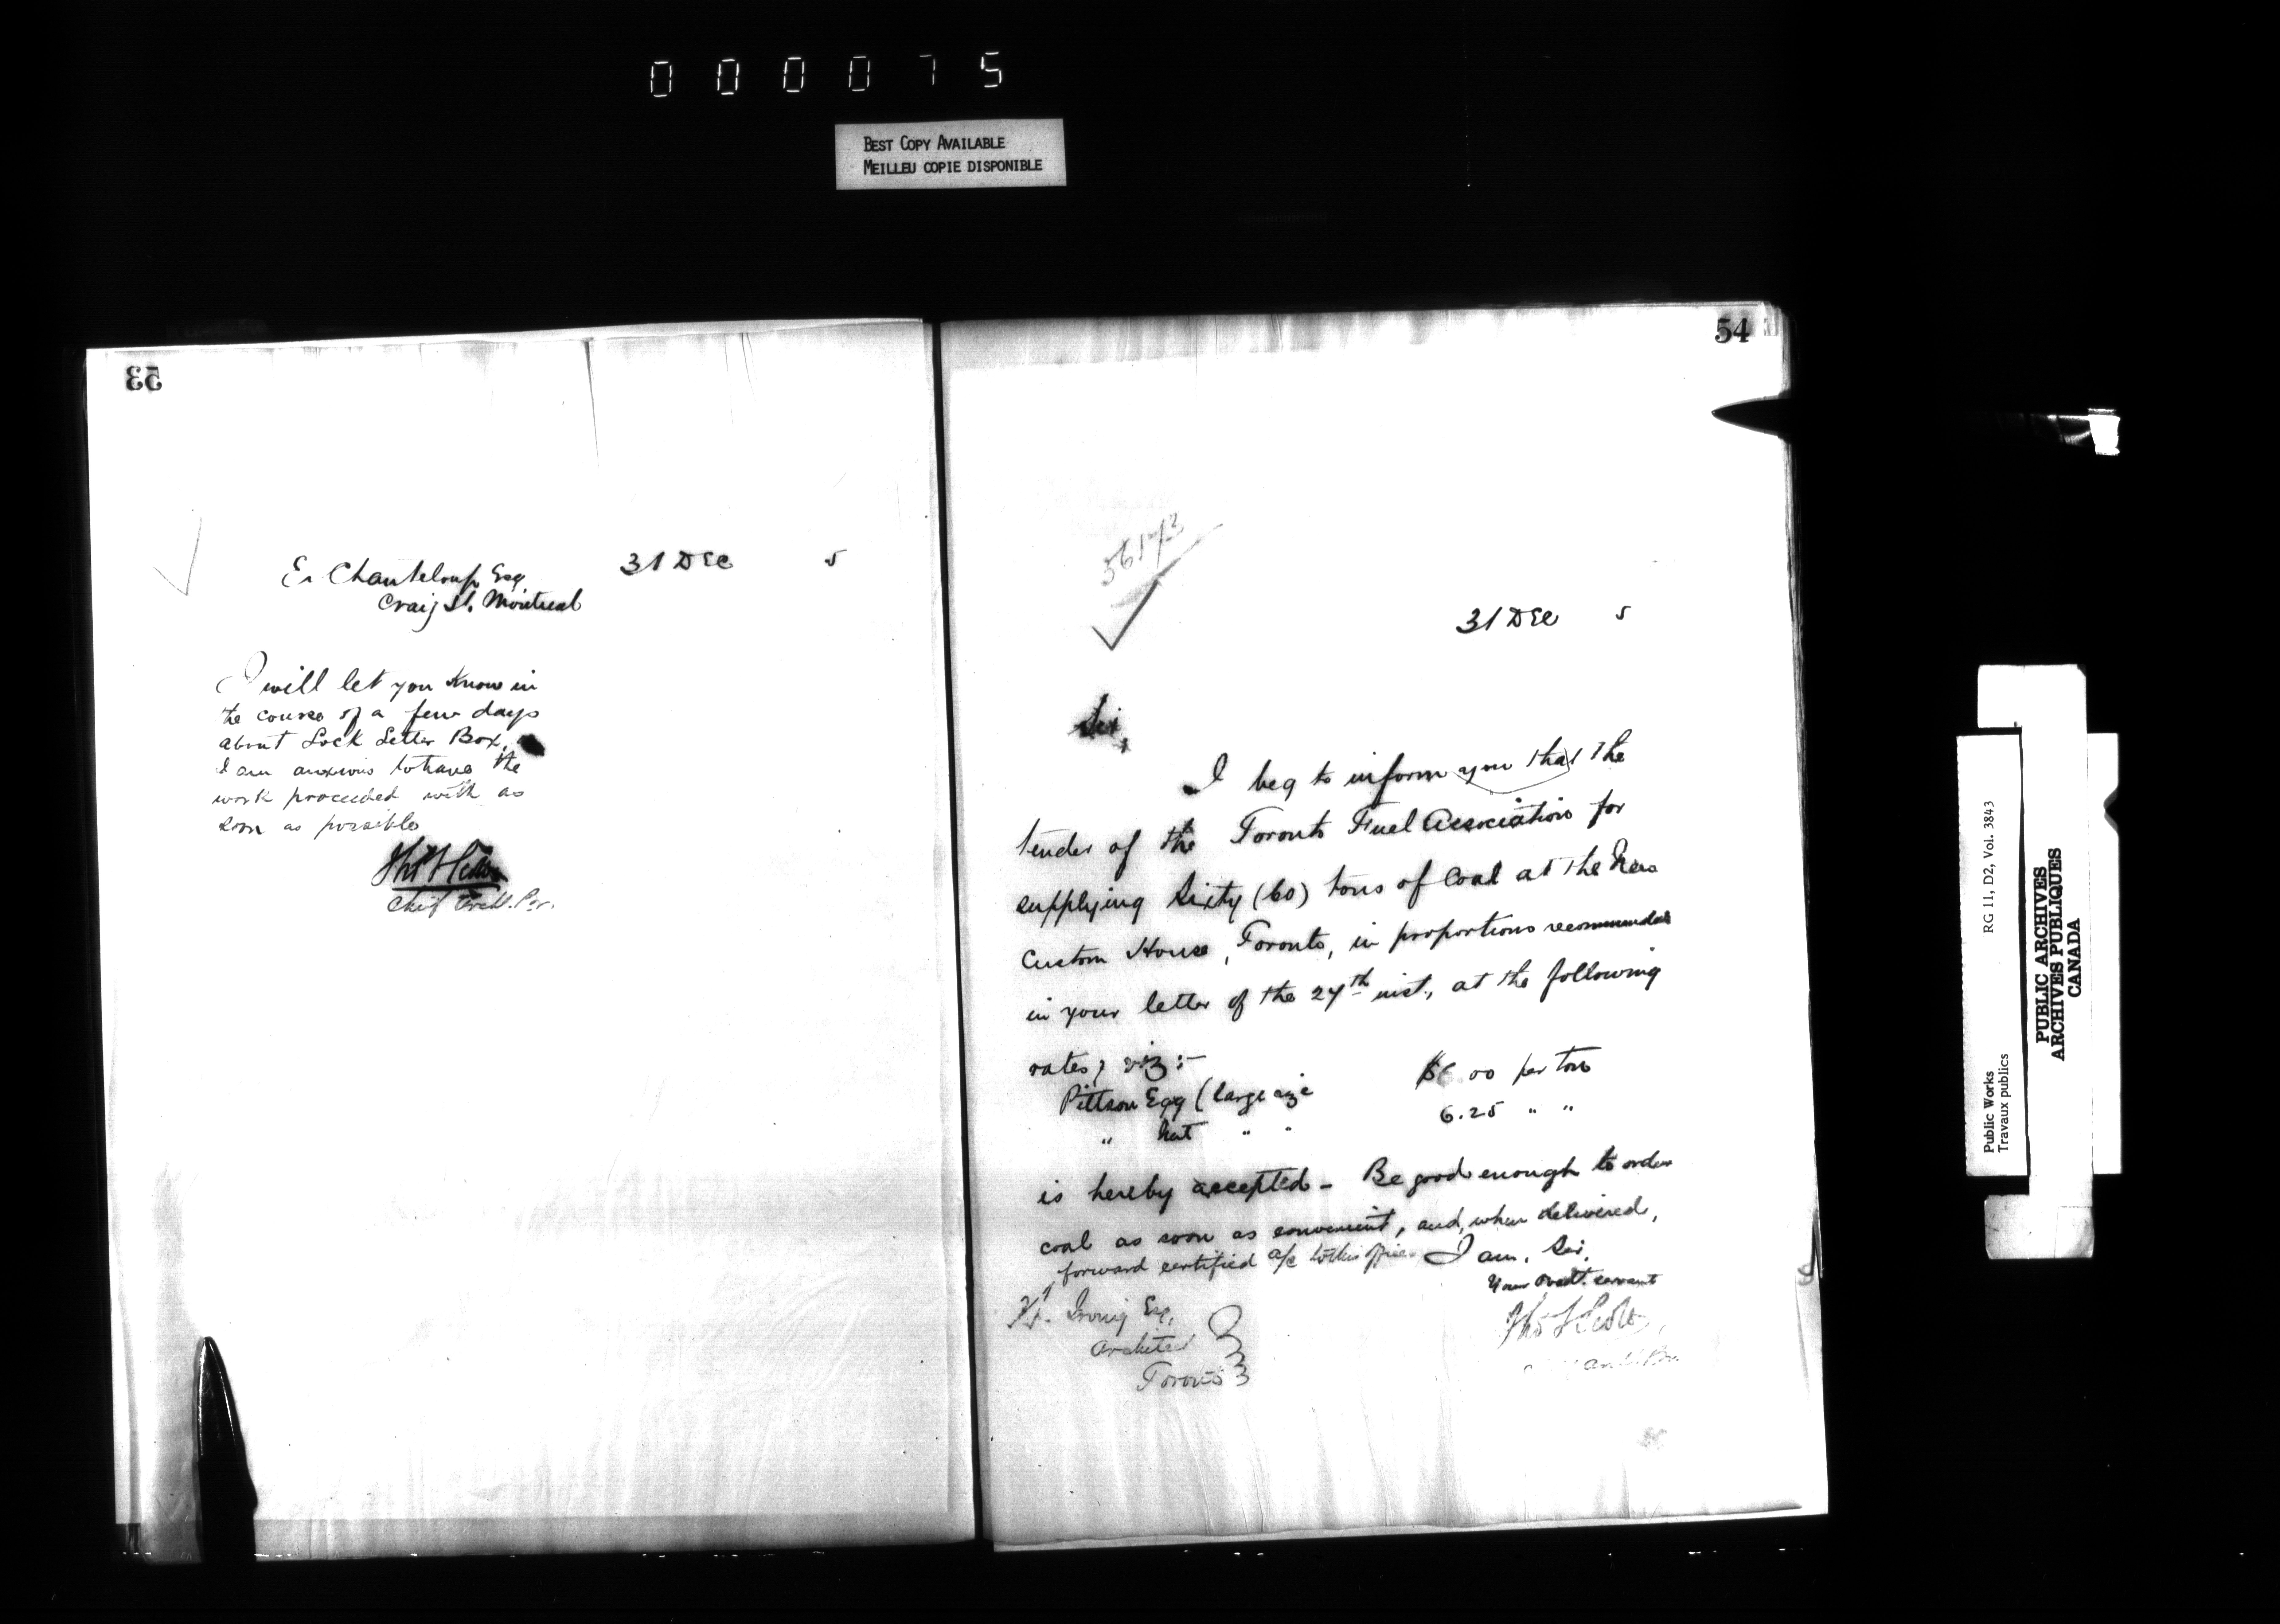 000075
BEST COPY AVAILABLE
MEILLEU COPIE DISPONIBLE
53
31 DEC 5
E. Chanteloup Esq
Craig St. Montreal
I will let you know in
the course of a few days
about Lock Letter Box,
I am anxious to have the
work proceeded with as
soon as possible
Thos S Scott
Chief Archt. P.W.
54
56173
31 DEC 5
Sir,
I beg to inform you that the
tender of the Toronto Fuel Association for
supplying Sixty (60) tons of Coal at the New
Custom House, Toronto, in proportions recommended
in your letter of the 27th inst., at the following
rates, viz:-
Pittson Egg (large size $6.00 per ton
" Nut " " 6.25 " "
is hereby accepted - Be good enough to order
coal as soon as convenient, and, when delivered,
forward certified a/c to this office. I am, Sir,
Your Obedt. servant
Thos S Scott,
Irving Esq,
Architect
Toronto
Public Works RG 11, D2, Vol. 3843
Travaux publics
PUBLIC ARCHIVES
ARCHIVES PUBLIQUES
CANADA